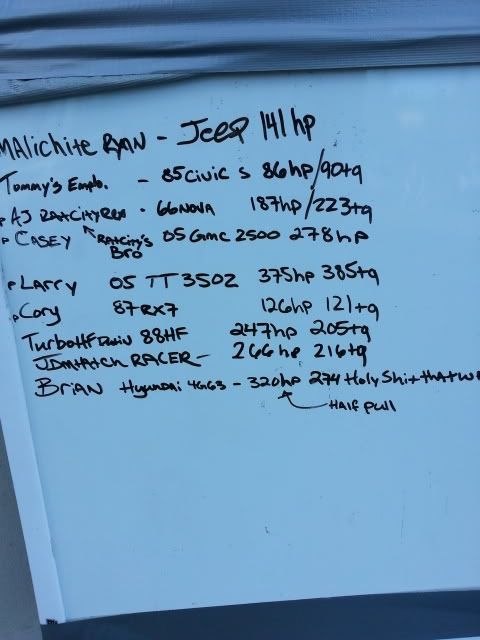 MAlichite RYAN - Jeep 141hp
Tommy's Emplo. - 85 Civic S 86hp/90tq
P AJ RatCityRex - 66 NOVA 187hp/223tq
P CASEY RatCity's Bro 05 GMC 2500 278hp
P LArry 05 TT 350Z 375hp 385tq
P Cory 87 RX7 126hp 121tq
TurboHF 88HF 247hp 205tq
RACER - 266hp 216tq
BriAN Hyundai 4G63 - 320hp 274 Holy Shit that w
HAlf pull